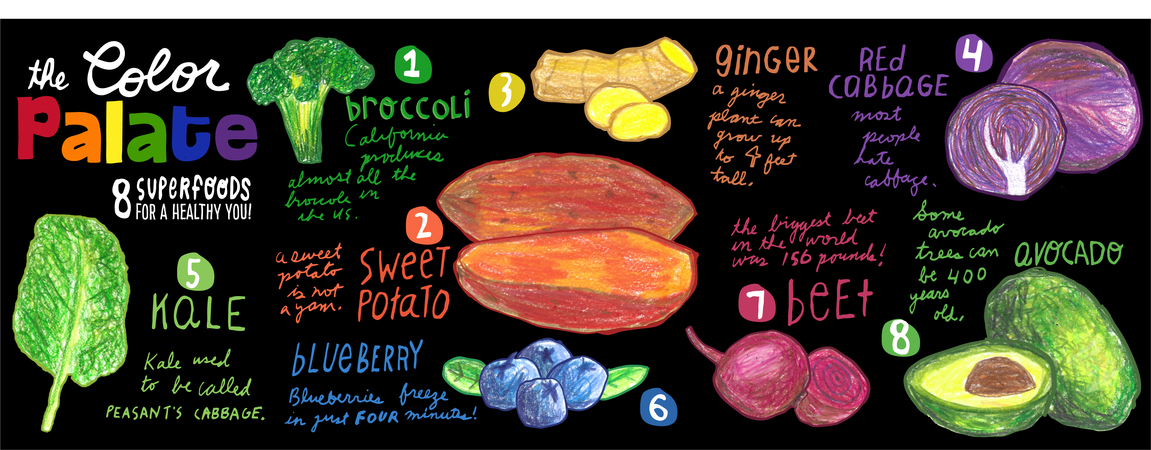 the Color
Palate
8 SUPERFOODS
FOR A HEALTHY YOU!
1
broccoli
California
produces
almost all the
broccoli in
the US.
2
SWEET
POTATO
a sweet
potato
is not
a yam.
3
GINGER
a ginger
plant can
grow up
to 4 feet
tall.
4
RED
CABBAGE
most
people
hate
cabbage.
5
KALE
Kale used
to be called
PEASANT'S CABBAGE.
BLUEBERRY
Blueberries freeze
in just FOUR minutes!
6
the biggest beet
in the world
was 156 pounds!
7
beet
8
AVOCADO
Some
avocado
trees can
be 400
years
old.